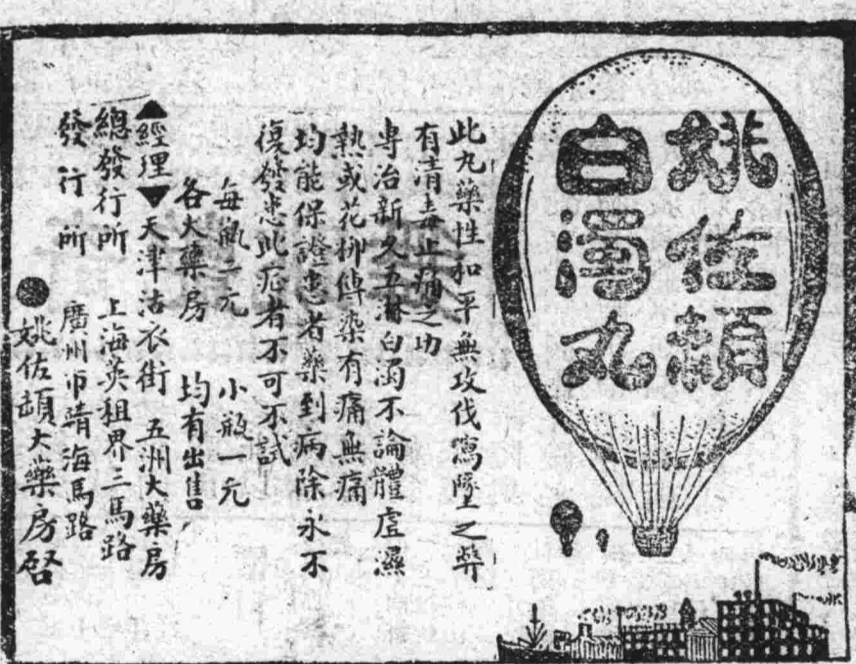 姚佐頓
白濁丸
此丸藥性和平無攻伐瀉墜之弊
有清毒止痛之功
專治新久五淋白濁不論體虛濕
熱或花柳傳染有痛無痛
均能保證患者藥到病除永不
復發患此症者不可不試
每瓶一元 小瓶一元
各大藥房 均有出售
▲經理▼天津沽衣街 五洲大藥房
總發行所 上海英租界三馬路
發行所 廣州市靖海馬路
●姚佐頓大藥房啓